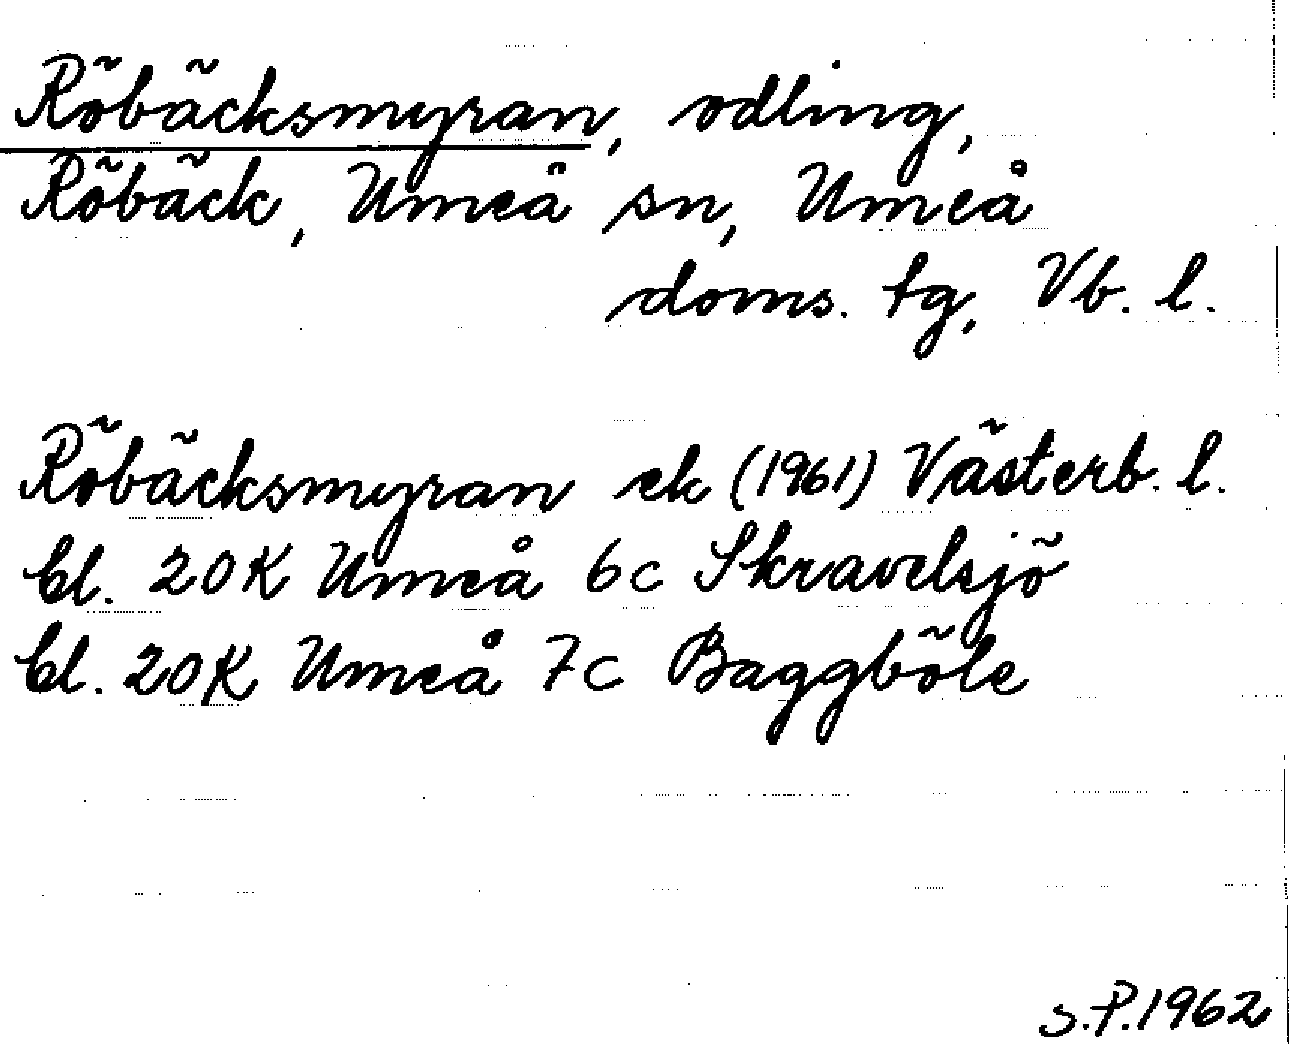 Röbäcksmyran, odling,
Röbäck, Umeå sn, Umeå
doms. tg, Vb. l.
Röbäcksmyran ek (1961) Västerb. l.
bl. 20K Umeå 6c Skravelsjö
bl. 20K Umeå 7c Baggböle
S.P.1962